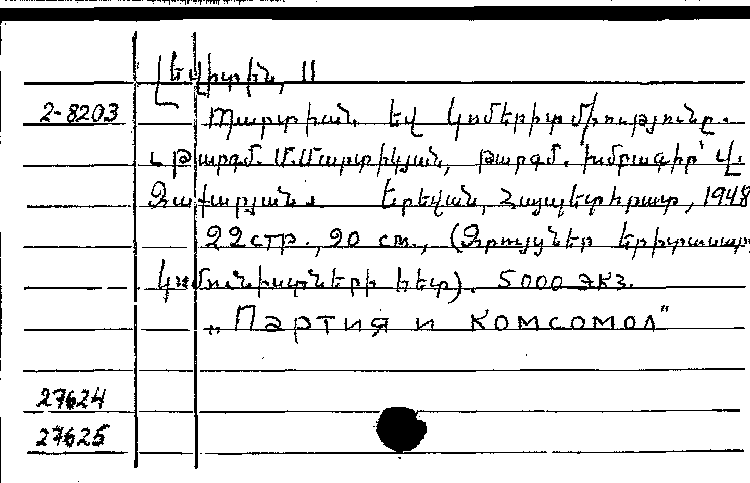 Լևիտին, Ս
2-8203 Պարտիան եվ կոմերիտմիությունը.
Թարգմ. Մ. Մարտիկյան, թարգմ. խմբագիր՝ Վ.
Զաքարյան. Երեվան, Հայպետհրատ, 1948
22 стр., 20 см., (Զրույցներ երիտասարդ
կոմունիստների հետ). 5000 экз.
„Партия и комсомол"
27624
27625